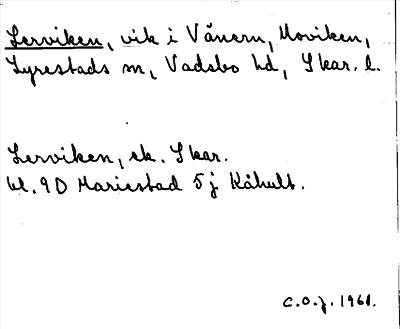 Lerviken, vik i Vänern, Moviken,
Lyrestads sn, Vadsbo hd, Skar. l.
Lerviken, ek. Skar.
bl. 9D Mariestad 5j Kåhult.
C.O.J. 1961.